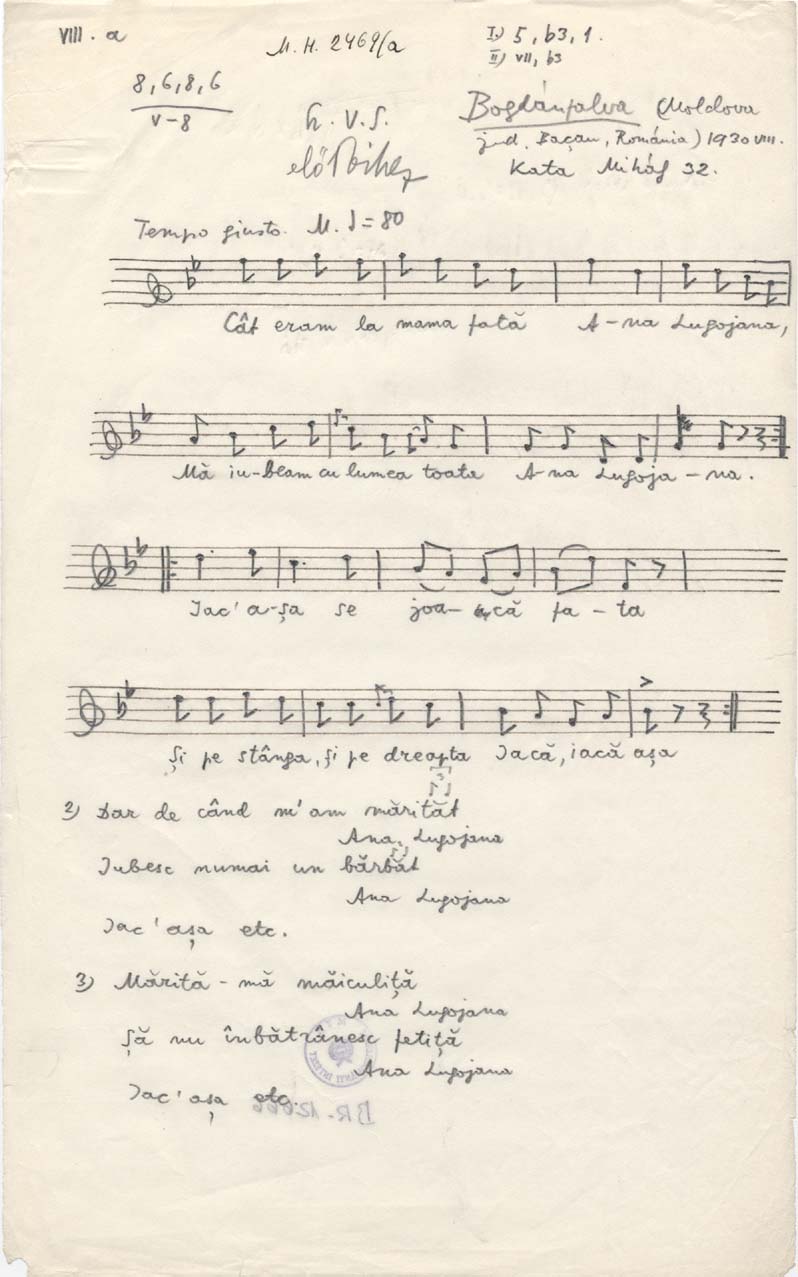 VIII. a
M. H. 2469/a
I.) 5, b3, 1.
II) VII, b3
8, 6, 8, 6
V-8
Bogdánfalva (Moldova
jud. Bacău, România) 1930 VIII.
Kata Mihály 32.
Tempo giusto. M. ♩=80
Cât eram la mama fată A-na Lugojana,
Mă iu-beam cu lumea toata A-na Lugoja-na.
Iac' a-șa se joa-că fa-ta
Și pe stânga, și pe dreapta Iacă, iacă așa
3
2) Dar de când m'am măritat
Ana Lugojana
Iubesc numai un bărbat
Ana Lugojana
Iac' așa etc.
3) Mărită-mă măiculiță
Ana Lugojana
Șă nu înbătrânesc fetiță
Ana Lugojana
Iac' așa etc.